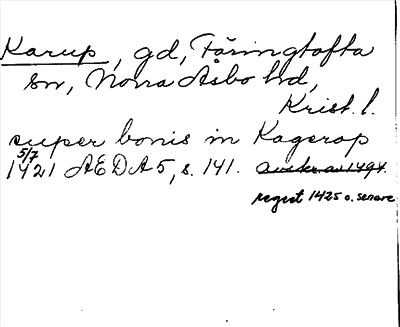 Karup, gd, Färingtofta
sn, Norra Åsbo hd,
Krist. l.
super bonis in Kagerop
5/7
1421 AEDA 5, s. 141.
regest 1425 o. senare